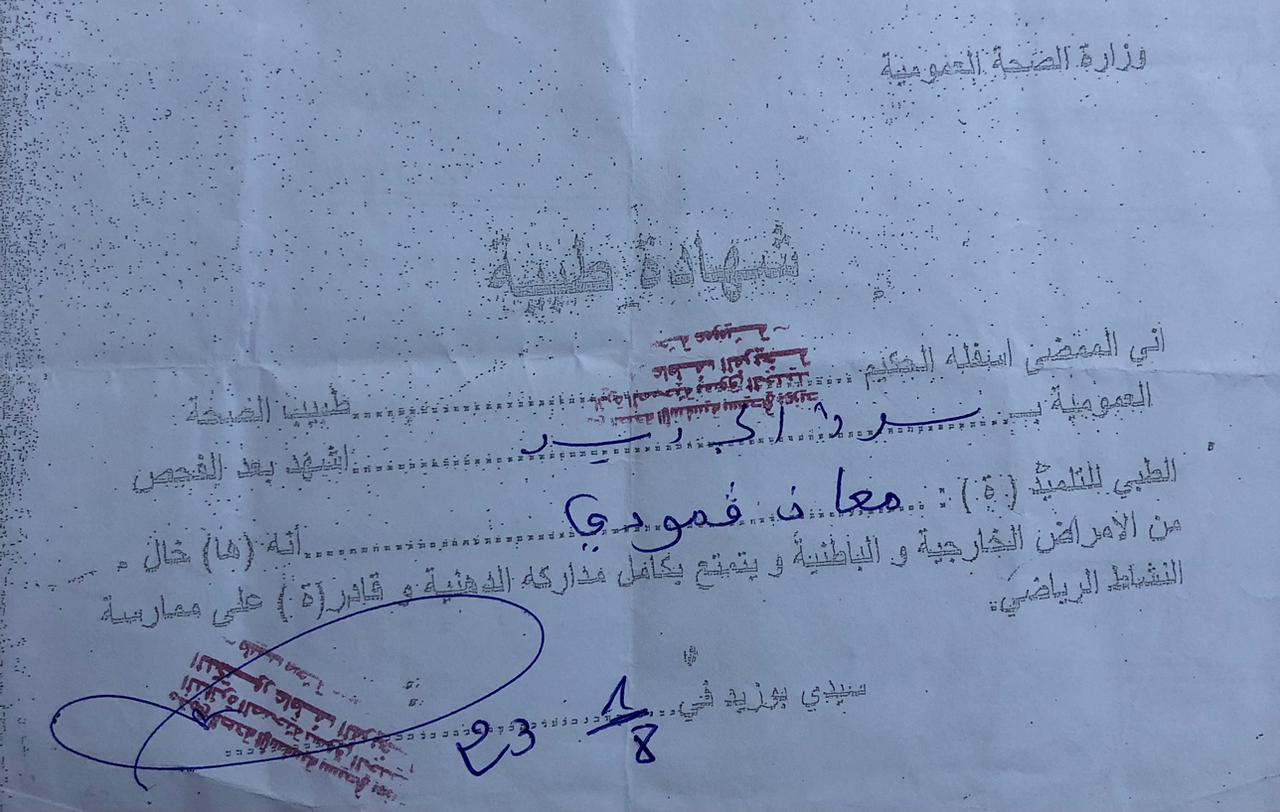 وزارة الصحة العمومية
شهادة طبية
اني الممضي اسفله الحكيم ................ طبيب الصحة
العمومية بـ ................ اشهد بعد الفحص
الطبي للتلميذ (ة) : معاذ قمودي ................ أنه (ها) خال
من الامراض الخارجية و الباطنية و يتمتع بكامل مداركه الذهنية و قادر (ة) على ممارسة
النشاط الرياضي.
سيدي بوزيد في ................ 1/8 23